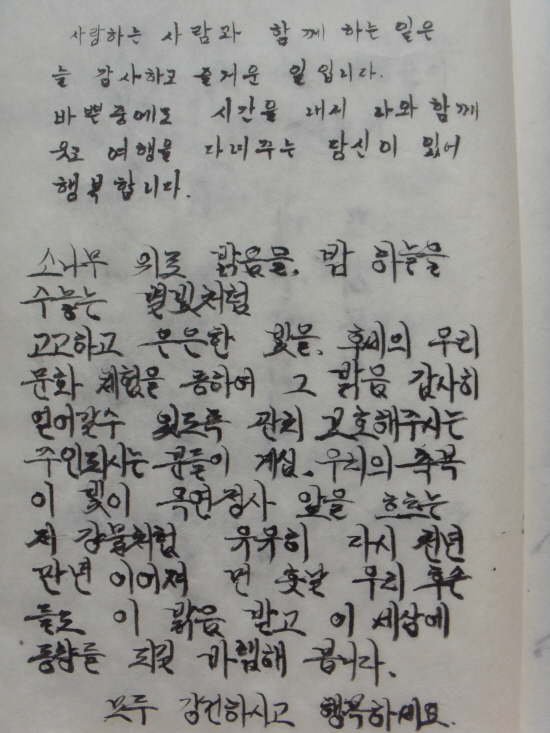 사랑하는 사람과 함께 하는 일은
늘 감사하고 즐거운 일입니다.
바쁜중에도 시간을 내서 나와 함께
웃고 여행을 다녀주는 당신이 있어
행복합니다.
소나무 위로 밝음을, 밤 하늘을
수놓는 별빛처럼
고고하고 은은한 빛을, 후세의 우리
문화 체험을 통하여 그 밝음 감사히
얻어갈수 있도록 관리 보호해주시는
주인되시는 분들이 계심. 우리의 축복
이 빛이 옥연정사 앞을 흐르는
저 강물처럼 유유히 다시 천년
만년 이어져 먼 훗날 우리 후손
들도 이 밝음 받고 이 세상에
되길 바램해 봅니다.
모두 강건하시고 행복하세요.